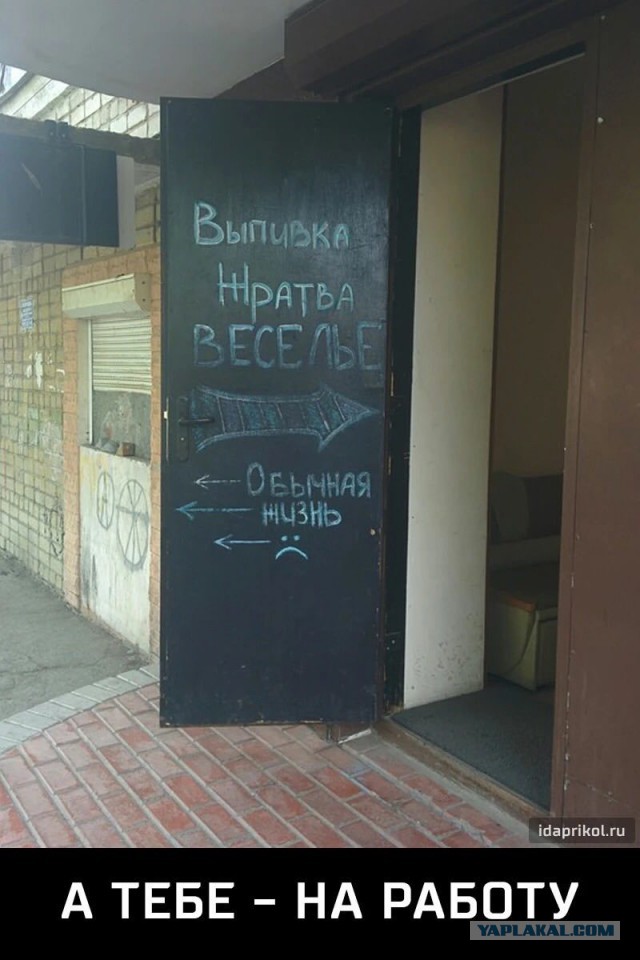 Выпивка
Жратва
ВЕСЕЛЬЕ
Обычная
жизнь
idaprikol.ru
А ТЕБЕ – НА РАБОТУ
YAPLAKAL.COM